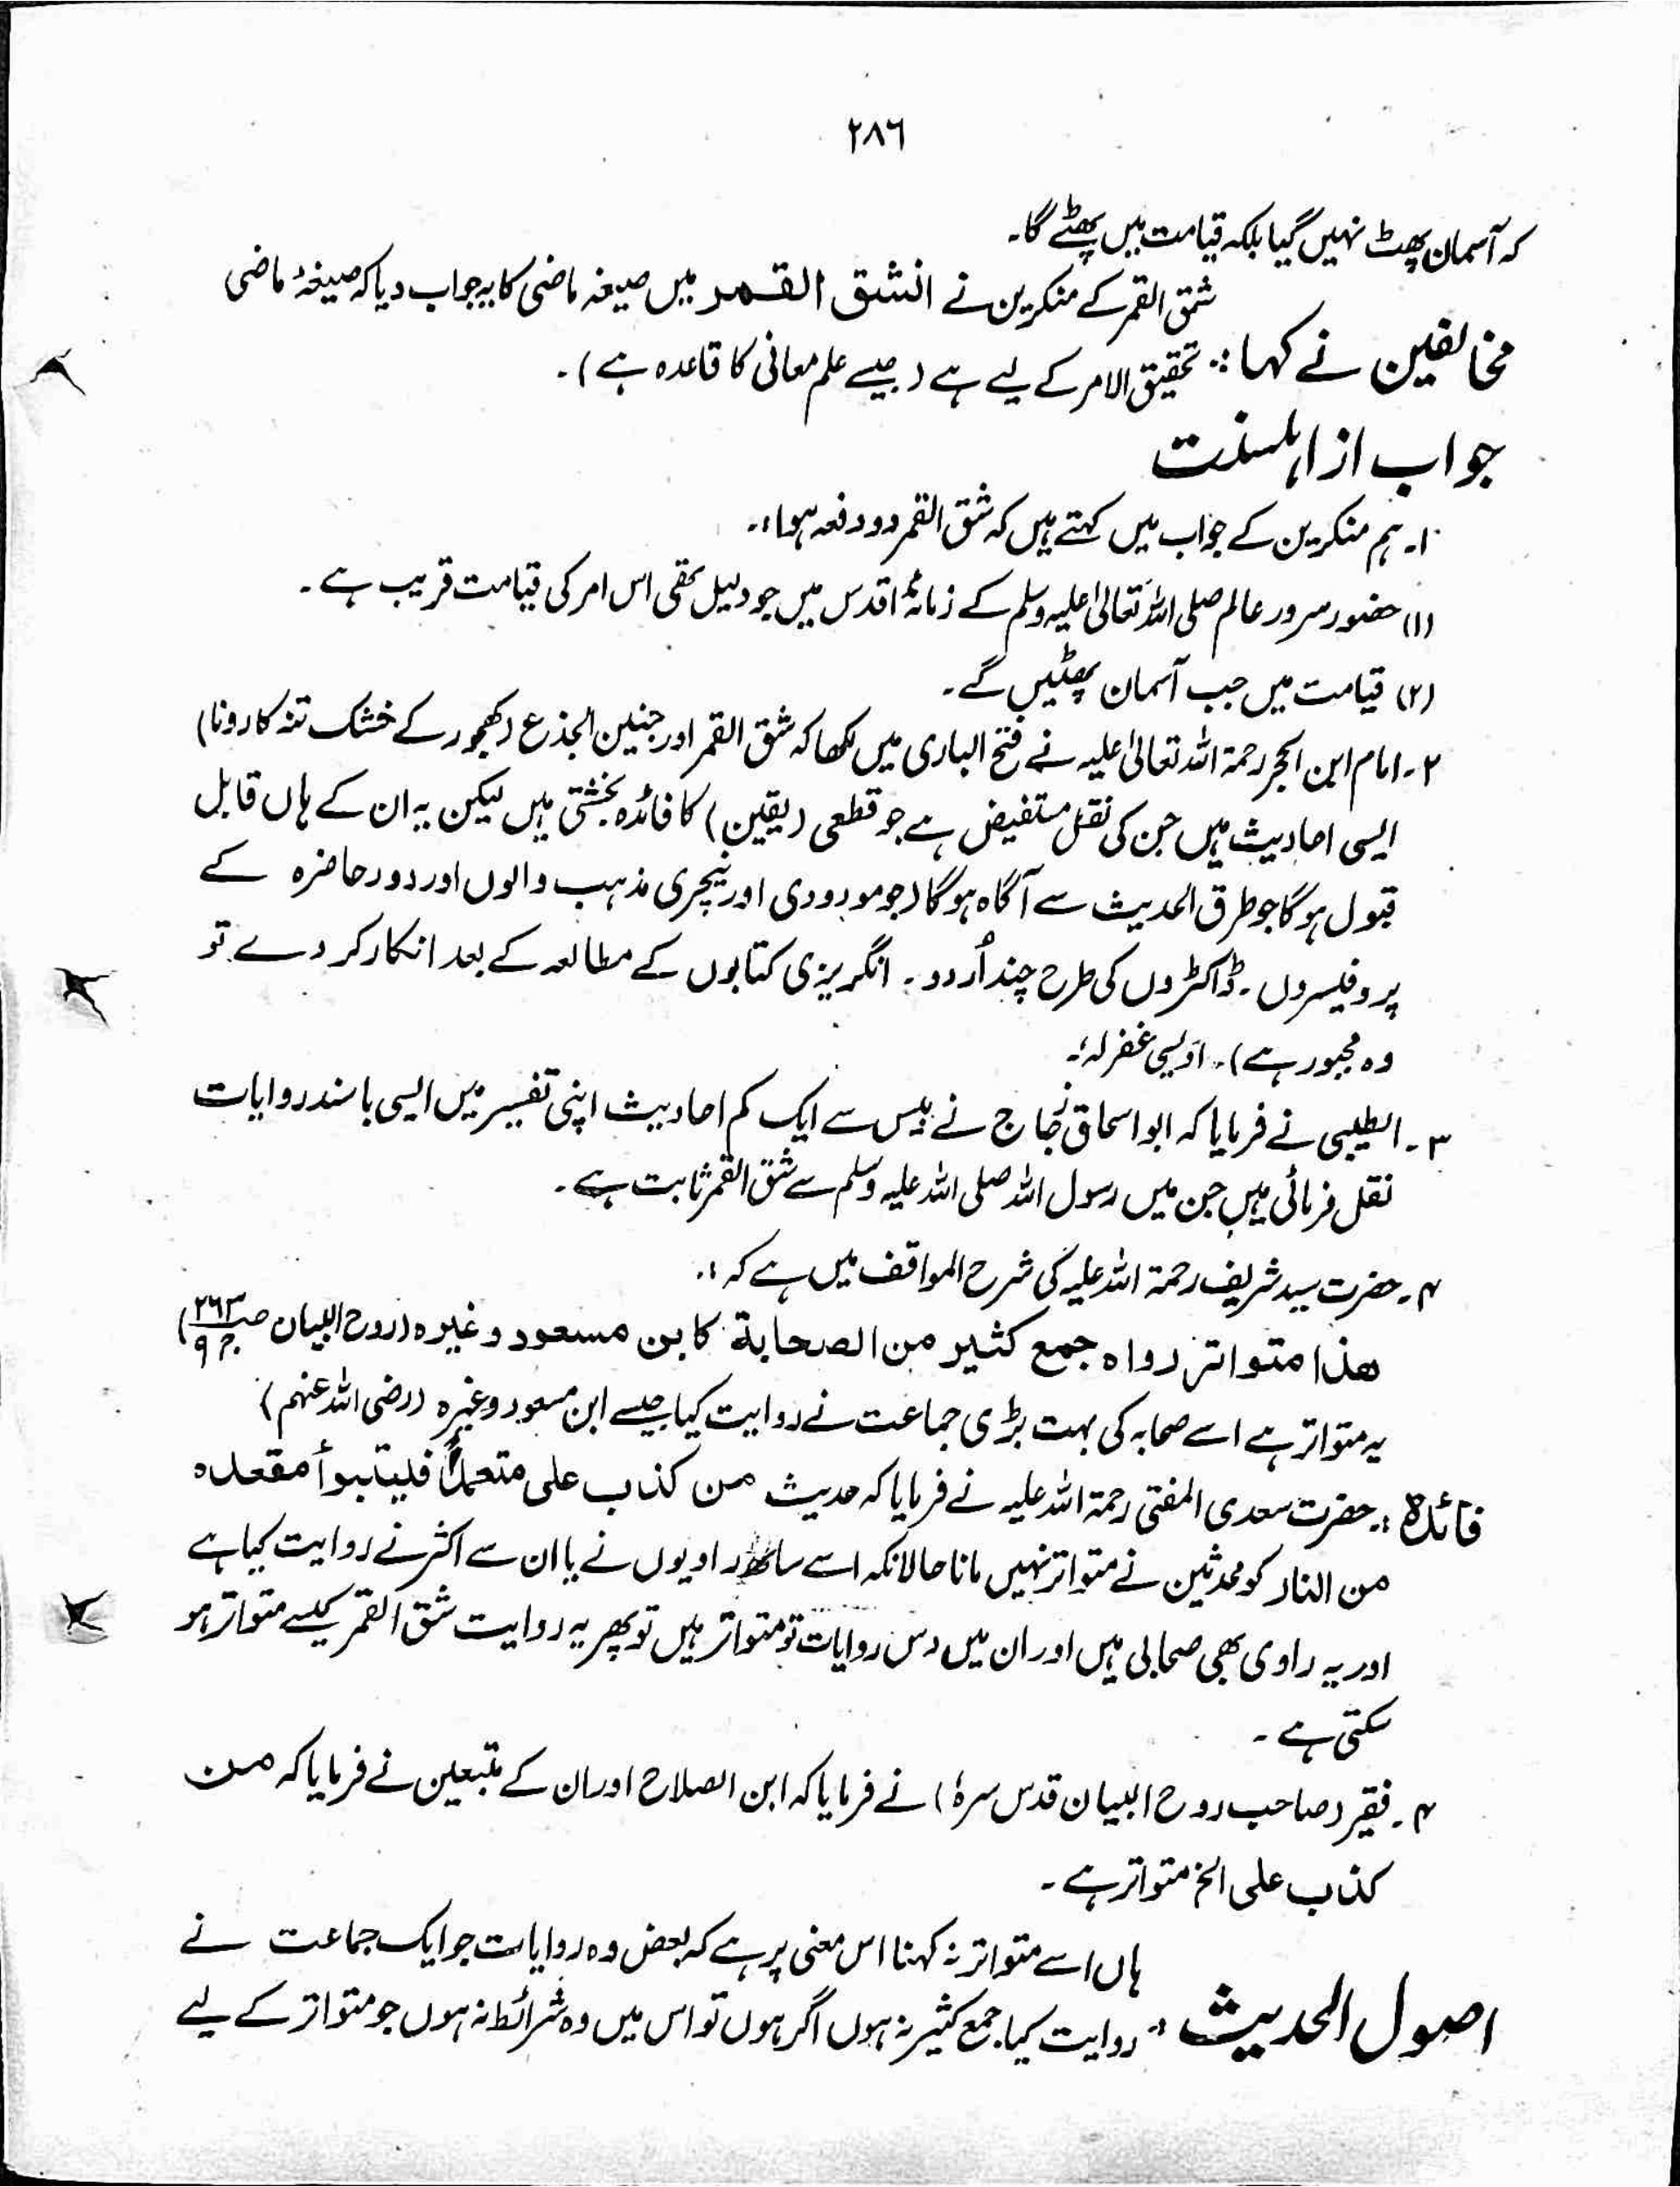 ۲۸۶
کہ آسمان پھٹ نہیں گیا بلکہ قیامت میں پھٹے گا۔
مخالفین نے کہا:۔ شق القمر کے منکرین نے انشق القمر میں صیغہ ماضی کا یہ جواب دیا کہ صیغۂ ماضی
تحقیق الامر کے لیے ہے (جیسے علم معانی کا قاعدہ ہے)۔
جواب از اہلسنت
۱۔ ہم منکرین کے جواب میں کہتے ہیں کہ شق القمر دو دفعہ ہوا:۔
(۱) حضور سرور عالم صلی اللہ تعالیٰ علیہ وسلم کے زمانۂ اقدس میں جو دلیل تھی اس امر کی قیامت قریب ہے۔
(۲) قیامت میں جب آسمان پھٹیں گے۔
۲۔ امام ابن الحجر رحمۃ اللہ تعالیٰ علیہ نے فتح الباری میں لکھا کہ شق القمر اور حنین الجذع (کھجور کے خشک تنہ کا رونا)
ایسی احادیث ہیں جن کی نقل مستفیض ہے جو قطعی (یقین) کا فائدہ بخشتی ہیں لیکن یہ ان کے ہاں قابل
قبول ہو گا جو طرق الحدیث سے آگاہ ہو گا (جو مودودی اور نیچری مذہب والوں اور دور حاضرہ کے
پروفیسروں۔ ڈاکٹروں کی طرح چند اُردو۔ انگریزی کتابوں کے مطالعہ کے بعد انکار کر دے تو
وہ مجبور ہے)۔ اویسی غفرلہ؛۔
۳۔ الطیبی نے فرمایا کہ ابو اسحاق زجاج نے بیس سے ایک کم احادیث اپنی تفسیر میں ایسی باسند روایات
نقل فرمائی ہیں جن میں رسول اللہ صلی اللہ علیہ وسلم سے شق القمر ثابت ہے۔
۴۔ حضرت سید شریف رحمۃ اللہ علیہ کی شرح المواقف میں ہے کہ:۔
ھذا متواتر رواہ جمع کثیر من الصحابۃ کابن مسعود وغیرہ (روح البیان ص ۲۶۳ ج ۹)
یہ متواتر ہے اسے صحابہ کی بہت بڑی جماعت نے روایت کیا جیسے ابن مسعود وغیرہ (رضی اللہ عنہم)
فائدہ:۔ حضرت سعدی المفتی رحمۃ اللہ علیہ نے فرمایا کہ حدیث من کذب علی متعمداً فلیتبوأ مقعدہ
من النار کو محدثین نے متواتر نہیں مانا حالانکہ اسے ساٹھ راویوں نے یا ان سے اکثر نے روایت کیا ہے
اور یہ راوی بھی صحابی ہیں اور ان میں دس روایات تو متواتر ہیں تو پھر یہ روایت شق القمر کیسے متواتر ہو
سکتی ہے۔
۴۔ فقیر (صاحب روح البیان قدس سرہٗ) نے فرمایا کہ ابن الصلاح اور ان کے متبعین نے فرمایا کہ من
کذب علی الخ متواتر ہے۔
اصول الحدیث:۔ ہاں اسے متواتر نہ کہنا اس معنی پر ہے کہ بعض وہ روایات جو ایک جماعت نے
روایت کیا جمع کثیر نہ ہوں اگر ہوں تو اس میں وہ شرائط نہ ہوں جو متواتر کے لیے